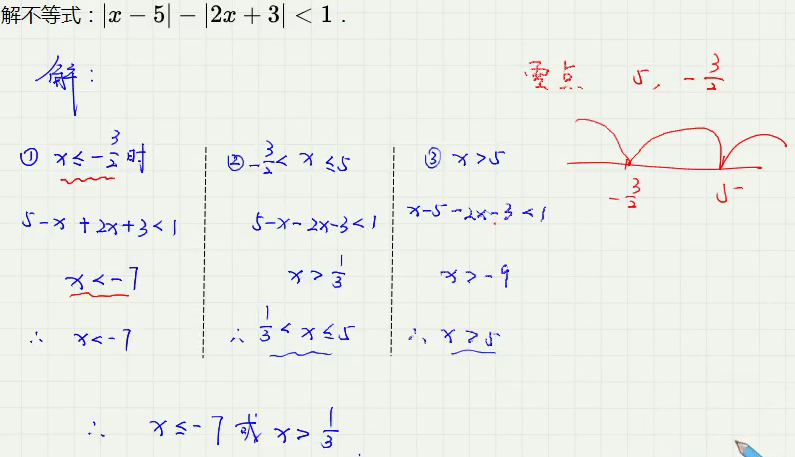 解不等式：|x − 5| − |2x + 3| < 1．
解：
零点 5, -3/2
-3/2 5
① x ≤ -3/2 时
5-x+2x+3<1
x<-7
∴ x<-7
② -3/2 < x ≤ 5
5-x-2x-3<1
x > 1/3
∴ 1/3 < x ≤ 5
③ x>5
x-5-2x-3<1
x>-9
∴ x>5
∴ x ≤ -7 或 x > 1/3